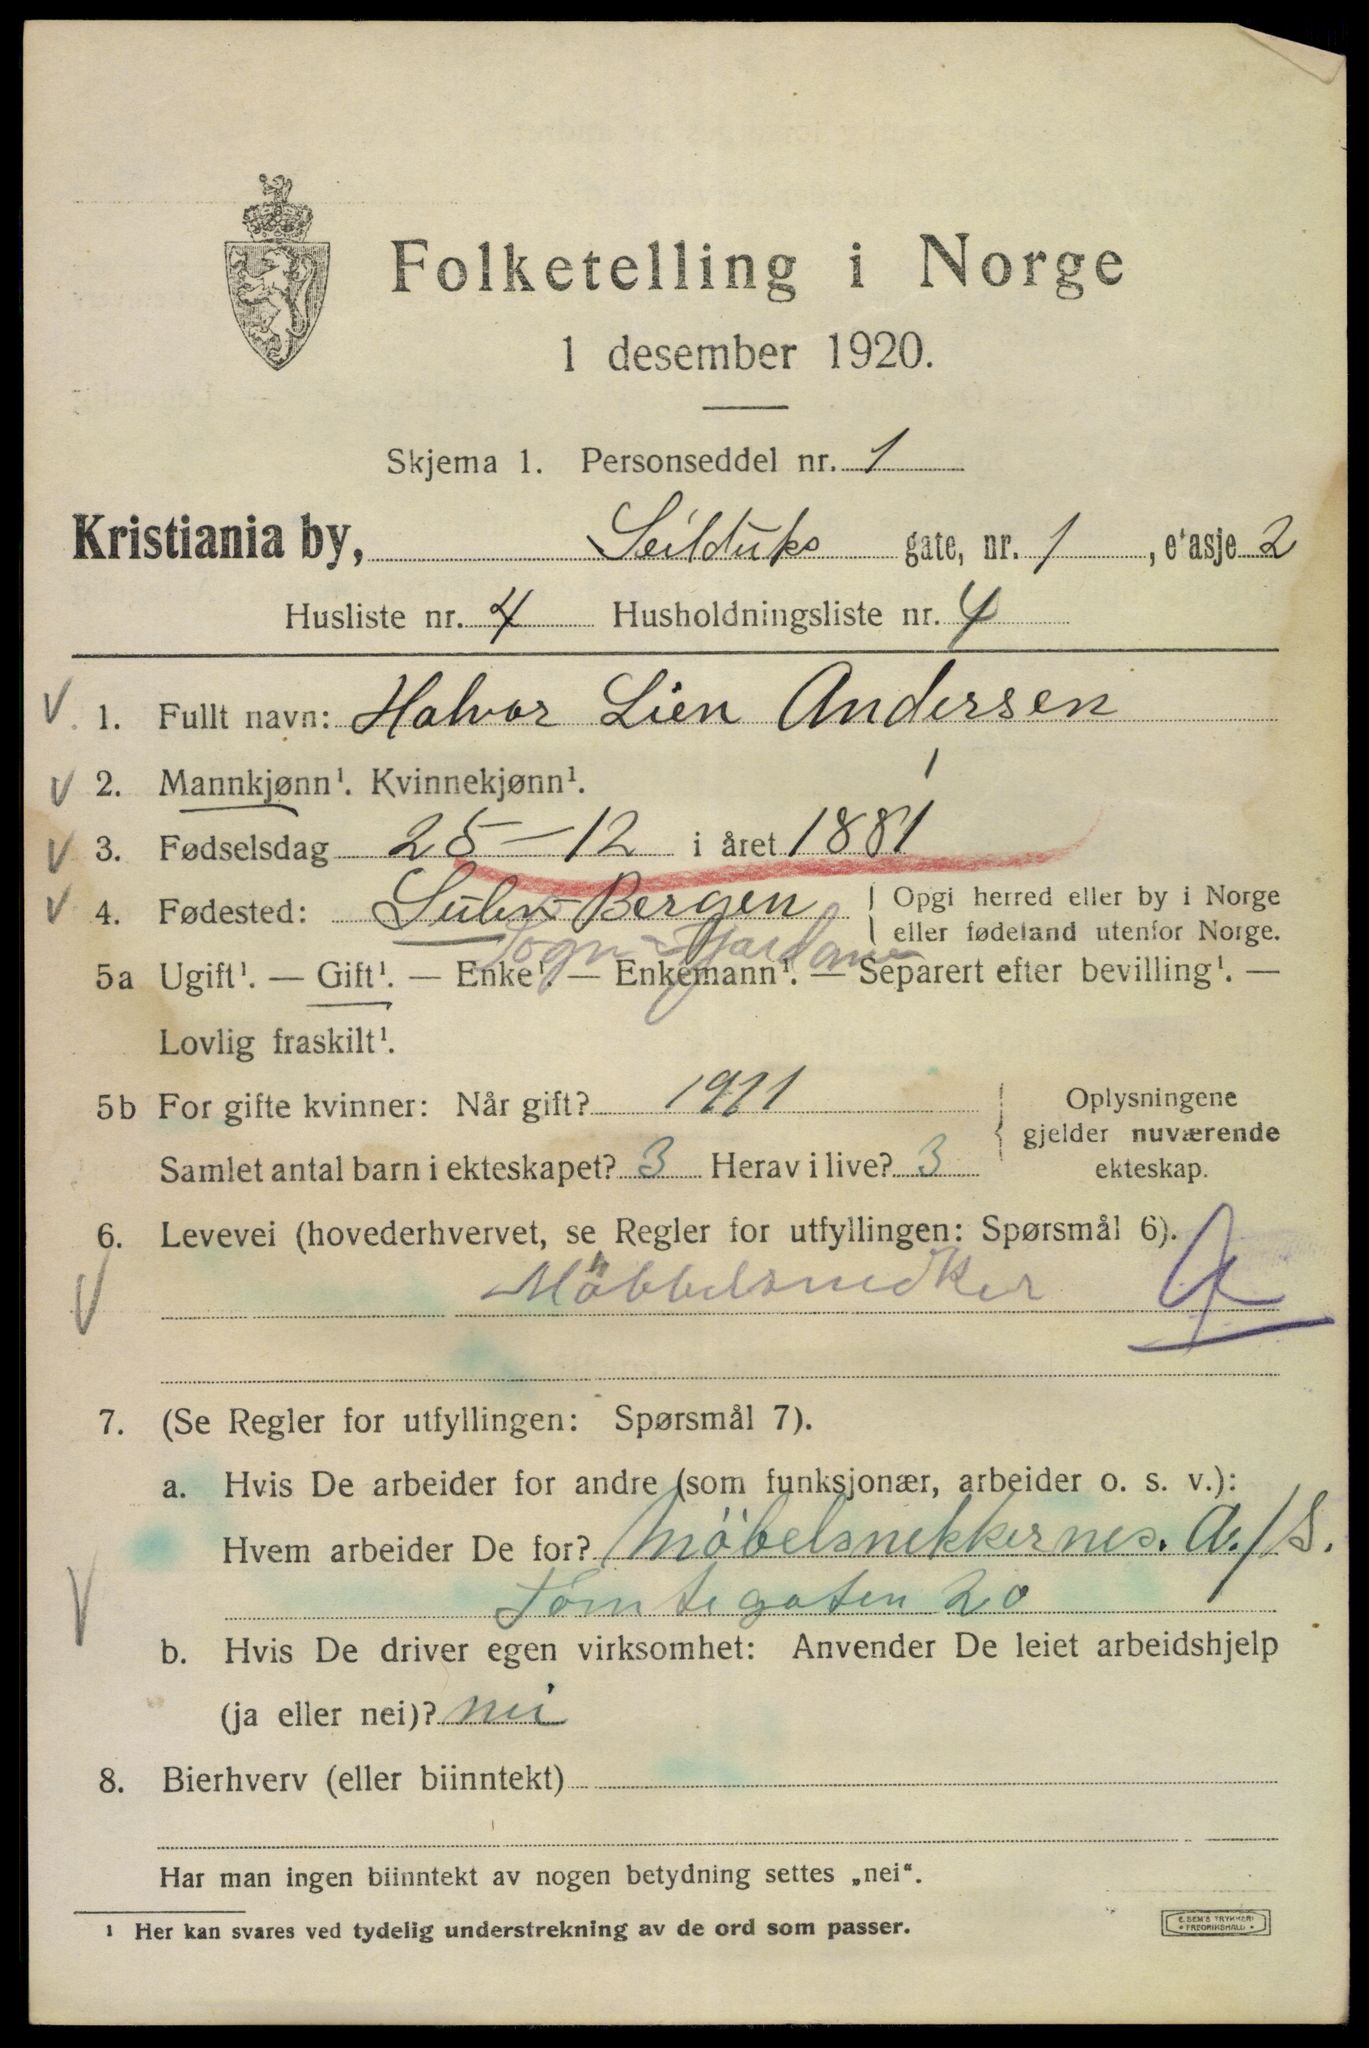 Folketelling i Norge
1 desember 1920.
Skjema 1. Personseddel nr. 1
Kristiania by, Seilduks gate, nr. 1, etasje 2
Husliste nr. 4 Husholdningsliste nr. 4
1. Fullt navn: Halvor Lien Andersen
2. Mannkjønn¹. Kvinnekjønn¹.
3. Fødselsdag 25-12 i året 1881
4. Fødested: Sulen Bergen Opgi herred eller by i Norge
eller fødeland utenfor Norge.
Sogn - Fjordane
5a Ugift¹. — Gift¹. — Enke¹. — Enkemann¹. — Separert efter bevilling¹. —
Lovlig fraskilt¹.
5b For gifte kvinner: Når gift? 1911 Oplysningene
gjelder nuværende
Samlet antal barn i ekteskapet? 3 Herav i live? 3 ekteskap.
6. Levevei (hovederhvervet, se Regler for utfyllingen: Spørsmål 6).
Möbbelsnedker
7. (Se Regler for utfyllingen: Spørsmål 7).
a. Hvis De arbeider for andre (som funksjonær, arbeider o. s. v.):
Hvem arbeider De for? Möbelsnekkernes. A/S.
Tomtegaten 20
b. Hvis De driver egen virksomhet: Anvender De leiet arbeidshjelp
(ja eller nei)? nei
8. Bierhverv (eller biinntekt)
Har man ingen biinntekt av nogen betydning settes „nei“.
¹ Her kan svares ved tydelig understrekning av de ord som passer.
E. SEM'S TRYKKERI
FREDRIKSHALD